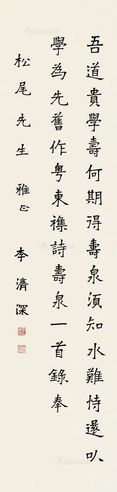 吾道貴學壽何期得壽泉須知水難恃還以
學為先舊作粵東襍詩壽泉一首錄奉
松尾先生 雅正 李濟深